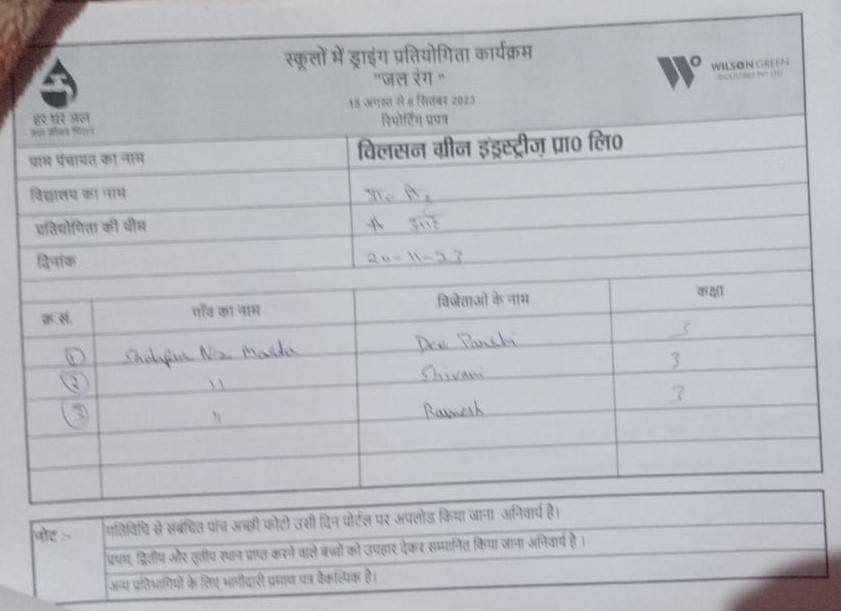 स्कूलों में ड्राइंग प्रतियोगिता कार्यक्रम
"जल रंग "
18 अगस्त से 8 सितंबर 2023
रिपोर्टिंग प्रपत्र
हर घर जल
जल जीवन मिशन
WILSON GREEN
INDUSTRIES PVT LTD
ग्राम पंचायत का नाम विलसन ग्रीन इंड्स्ट्रीज़ प्रा0 लि0
विद्यालय का नाम
प्रतियोगिता की थीम
दिनांक 20-11-23
क्र.सं. गाँव का नाम विजेताओं के नाम कक्षा
1 5
2 11 Shivani 3
3 11 Ramesh 3
नोट :- गतिविधि से संबंधित पांच अच्छी फोटो उसी दिन पोर्टल पर अपलोड किया जाना अनिवार्य है।
प्रथम, द्वितीय और तृतीय स्थान प्राप्त करने वाले बच्चो को उपहार देकर सम्मानित किया जाना अनिवार्य है ।
अन्य प्रतिभागियों के लिए भागीदारी प्रमाण पत्र वैकल्पिक है।